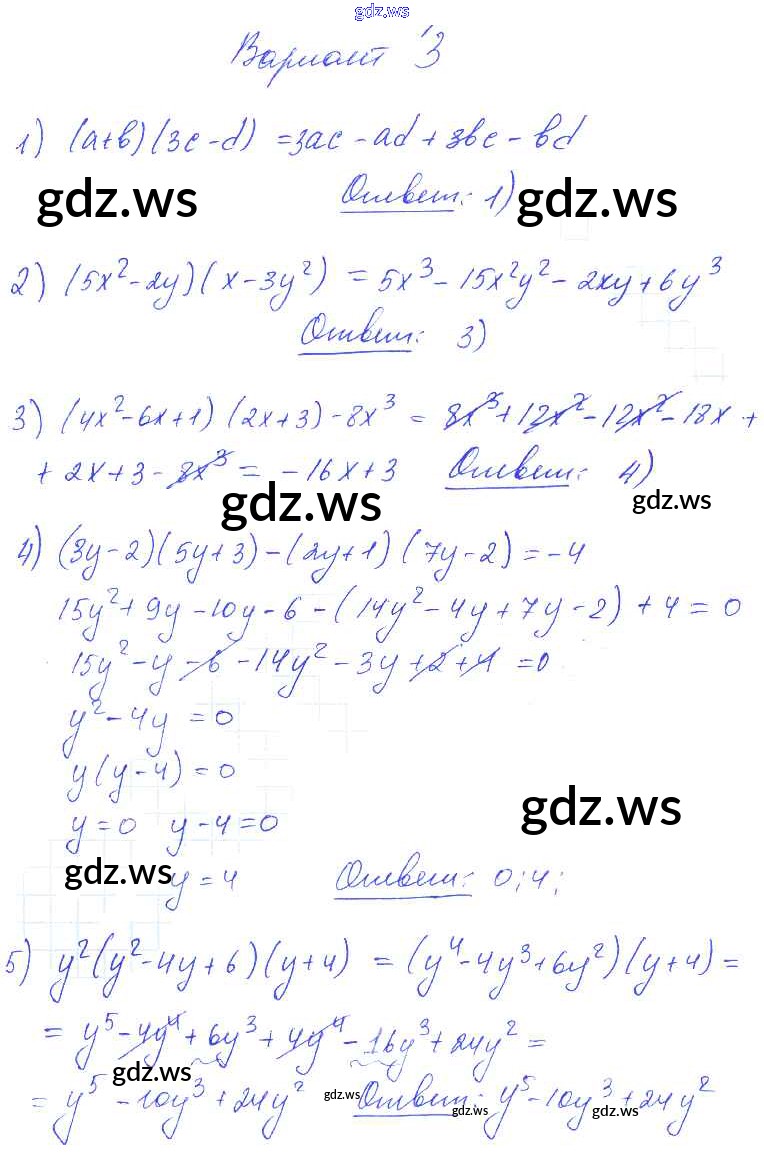 gdz.ws
Вариант 3
1) (a+b)(3c-d) = 3ac - ad + 3bc - bd
gdz.ws Ответ: 1) gdz.ws
2) (5x² - 2y)(x - 3y²) = 5x³ - 15x²y² - 2xy + 6y³
Ответ: 3)
3) (4x² - 6x + 1)(2x + 3) - 8x³ = 8x³ + 12x² - 12x² - 18x +
+ 2x + 3 - 8x³ = -16x + 3 Ответ: 4)
gdz.ws gdz.ws
4) (3y - 2)(5y + 3) - (2y + 1)(7y - 2) = -4
15y² + 9y - 10y - 6 - (14y² - 4y + 7y - 2) + 4 = 0
15y² - y - 6 - 14y² - 3y + 2 + 4 = 0
y² - 4y = 0
y(y - 4) = 0
gdz.ws
y = 0 y - 4 = 0
gdz.ws y = 4 Ответ: 0; 4;
5) y²(y² - 4y + 6)(y + 4) = (y⁴ - 4y³ + 6y²)(y + 4) =
= y⁵ - 4y⁴ + 6y³ + 4y⁴ - 16y³ + 24y² =
gdz.ws gdz.ws
= y⁵ - 10y³ + 24y² Ответ: y⁵ - 10y³ + 24y²
gdz.ws gdz.ws